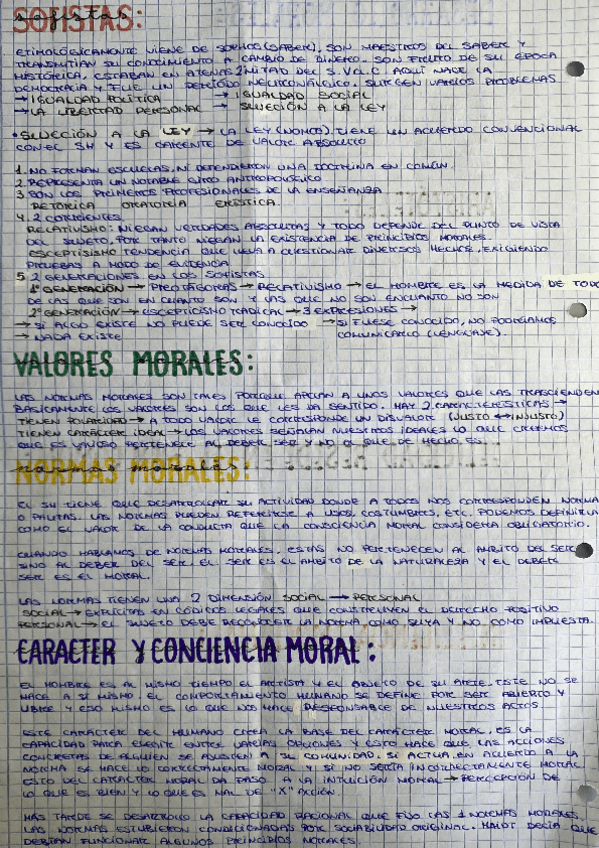 SOFISTAS:
sofistas
ETIMOLÓGICAMENTE VIENE DE SOPHOS (SABER), SON MAESTROS DEL SABER Y
TRANSMITÍAN SU CONOCIMIENTO A CAMBIO DE DINERO. SON FRUTO DE SU ÉPOCA
HISTÓRICA, ESTABAN EN ATENAS 2 MITAD DEL S.V a.C. AQUÍ NACE LA
DEMOCRACIA Y FUE UN PERÍODO SURGEN VARIOS PROBLEMAS
→ IGUALDAD POLÍTICA → IGUALDAD SOCIAL
→ LA LIBERTAD PERSONAL → SUJECIÓN A LA LEY
• SUJECIÓN A LA LEY → LA LEY (NOMOS) TIENE UN ACUERDO CONVENCIONAL
CON EL SH Y ES CARENTE DE VALOR ABSOLUTO
1. NO FORMAN ESCUELAS, NI DEFENDIERON UNA DOCTRINA EN COMÚN.
2. REPRESENTA UN NOTABLE GIRO ANTROPOLÓGICO
3. SON LOS PRIMEROS PROFESIONALES DE LA ENSEÑANZA
RETÓRICA ORATORIA ERÍSTICA.
4. 2 CORRIENTES.
RELATIVISMO: NIEGAN VERDADES ABSOLUTAS Y TODO DEPENDE DEL PUNTO DE VISTA
DEL SUJETO, POR TANTO NIEGAN LA EXISTENCIA DE PRINCIPIOS MORALES.
ESCEPTISISMO TENDENCIA QUE LLEVA A CUESTIONAR DIVERSOS HECHOS, EXIGIENDO
PRUEBAS A MODO DE EVIDENCIA
5. 2 GENERACIONES EN LOS SOFISTAS
1º GENERACIÓN → PROTÁGORAS → RELATIVISMO → EL HOMBRE ES LA MEDIDA DE TODO
DE LAS QUE SON EN CUANTO SON Y LAS QUE NO SON EN CUANTO NO SON
2º GENERACIÓN → ESCEPTICISMO RADICAL → 3 EXPRESIONES →
→ SI ALGO EXISTE NO PUEDE SER CONOCIDO → SI FUESE CONOCIDO, NO PODRÍAMOS
→ NADA EXISTE COMUNICARLO (LENGUAJE).
VALORES MORALES:
LAS NORMAS MORALES SON TALES PORQUE APELAN A UNOS VALORES QUE LAS TRASCIENDEN
BÁSICAMENTE LOS VALORES SON LOS QUE LES DA SENTIDO. HAY 2 CARACTERÍSTICAS →
TIENEN POLARIDAD → A TODO VALOR LE CORRESPONDE UN DISVALOR (JUSTO ↔ INJUSTO)
TIENEN CARÁCTER IDEAL → LOS VALORES SEÑALAN NUESTROS IDEALES LO QUE CREEMOS
QUE ES VALIOSO PERTENECE AL DEBER SER Y NO AL QUE DE HECHO ES.
NORMAS MORALES:
normas morales
EL SH TIENE QUE DESARROLLAR SU ACTIVIDAD DONDE A TODOS NOS CORRESPONDEN NORMAS
O PAUTAS. LAS NORMAS PUEDEN REFERIRSE A USOS, COSTUMBRES, ETC. PODEMOS DEFINIRLA
COMO EL VALOR DE LA CONDUCTA QUE LA CONSCIENCIA MORAL CONSIDERA OBLIGATORIO.
CUANDO HABLAMOS DE NORMAS MORALES, ESTAS NO PERTENECEN AL AMBITO DEL SER
SINO AL DEBER DEL SER. EL SER ES EL AMBITO DE LA NATURALEZA Y EL DEBER
SER ES EL MORAL.
LAS NORMAS TIENEN UNA 2 DIMENSIÓN SOCIAL → PERSONAL
SOCIAL → EXPLÍCITAS EN CÓDIGOS LEGALES QUE CONSTRUYEN EL DERECHO POSITIVO
PERSONAL → EL SUJETO DEBE RECONOCER LA NORMA COMO SUYA Y NO COMO IMPUESTA.
CARACTER Y CONCIENCIA MORAL:
EL HOMBRE ES AL MISMO TIEMPO EL ARTISTA Y EL OBJETO DE SU ARTE. ESTE NO SE
HACE A SÍ MISMO. EL COMPORTAMIENTO HUMANO SE DEFINE POR SER ABIERTO Y
LIBRE Y ESO MISMO ES LO QUE NOS HACE RESPONSABLE DE NUESTROS ACTOS.
ESTE CARÁCTER DEL HUMANO CREA LA BASE DEL CARÁCTER MORAL, ES LA
CAPACIDAD PARA ELEGIR ENTRE VARIAS OPCIONES Y ESTO HACE QUE LAS ACCIONES
CONCRETAS DE ALGUIEN SE AJUSTEN A SU COMUNIDAD. SI ACTÚA EN ACUERDO A LA
NORMA SE HACE LO CORRECTAMENTE MORAL Y SI NO SERÍA INCORRECTAMENTE MORAL
ESTO DEL CARÁCTER MORAL DA PASO A LA INTUICIÓN MORAL → PERCEPCIÓN DE
LO QUE ES BIEN Y LO QUE ES MAL DE "X" ACCIÓN.
MÁS TARDE SE DESARROLLO LA CAPACIDAD RACIONAL QUE FIJO LAS 1 NORMAS MORALES.
LAS NORMAS ESTUBIERON CONDICIONADAS POR SOCIABILIDAD ORIGINAL. DECÍA QUE
DEBÍAN FUNCIONAR ALGUNOS PRINCIPIOS MORALES.